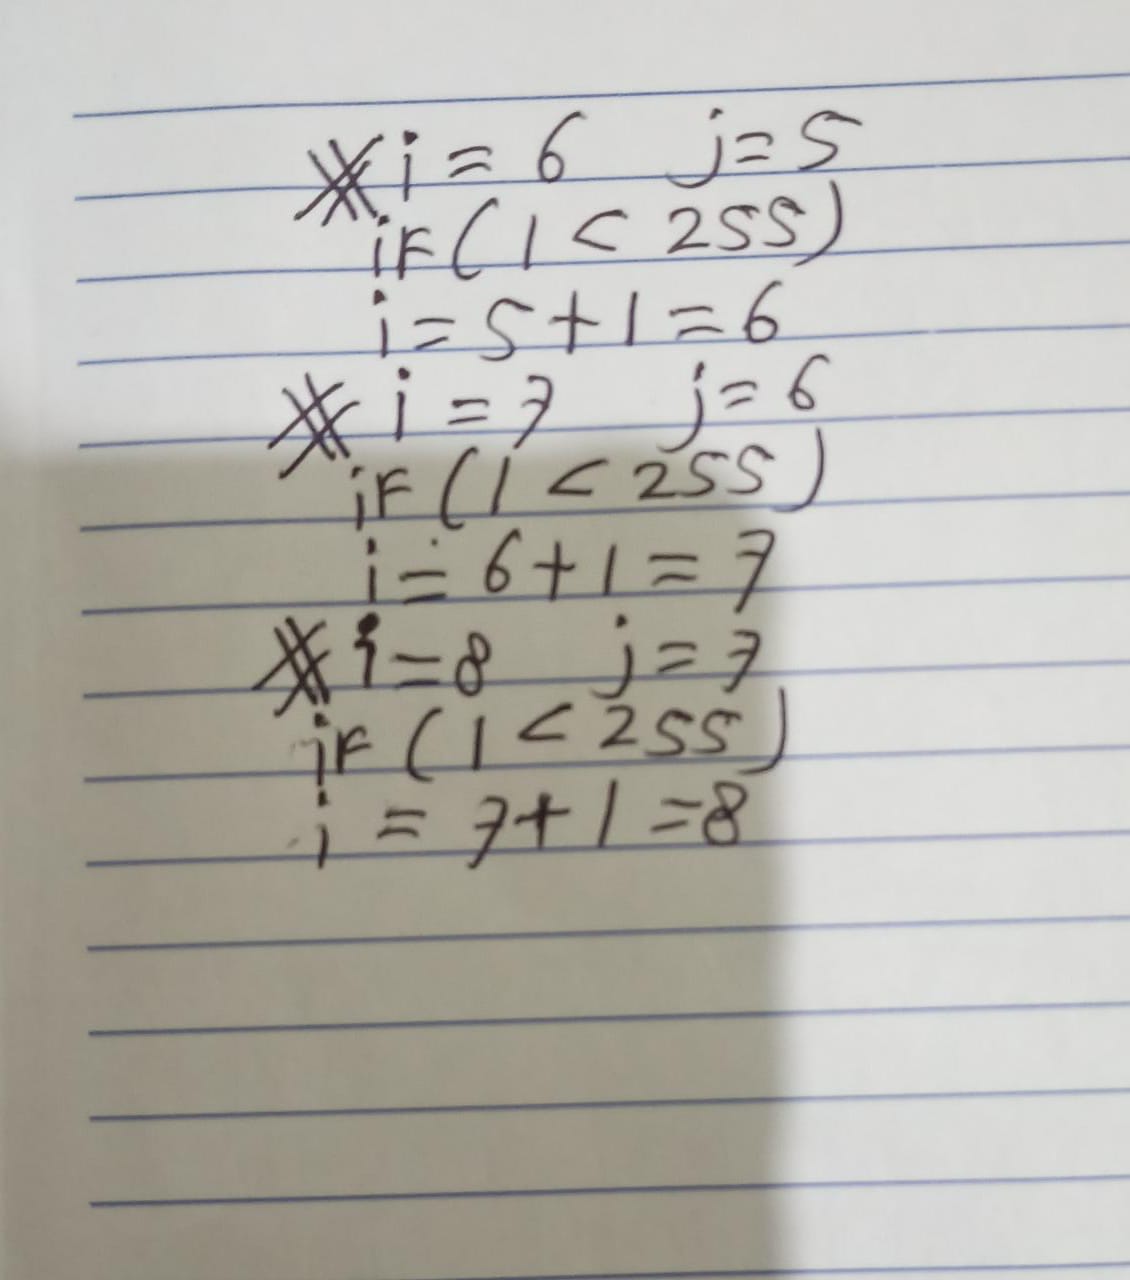 * i = 6 j = 5
if ( 1 < 255 )
i = 5 + 1 = 6
* i = 7 j = 6
if ( 1 < 255 )
i = 6 + 1 = 7
* i = 8 j = 7
if ( 1 < 255 )
i = 7 + 1 = 8